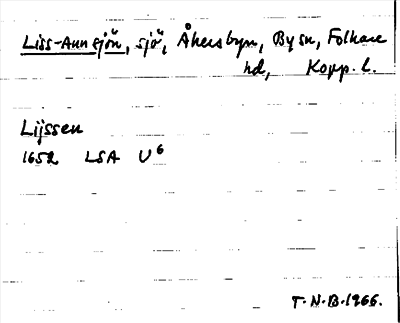 Liss-Annsjön, sjö, Åkersbyn, By sn, Folkare
hd, Kopp. l.
Lijssen
1652 LSA U6
T.N.B.1966.